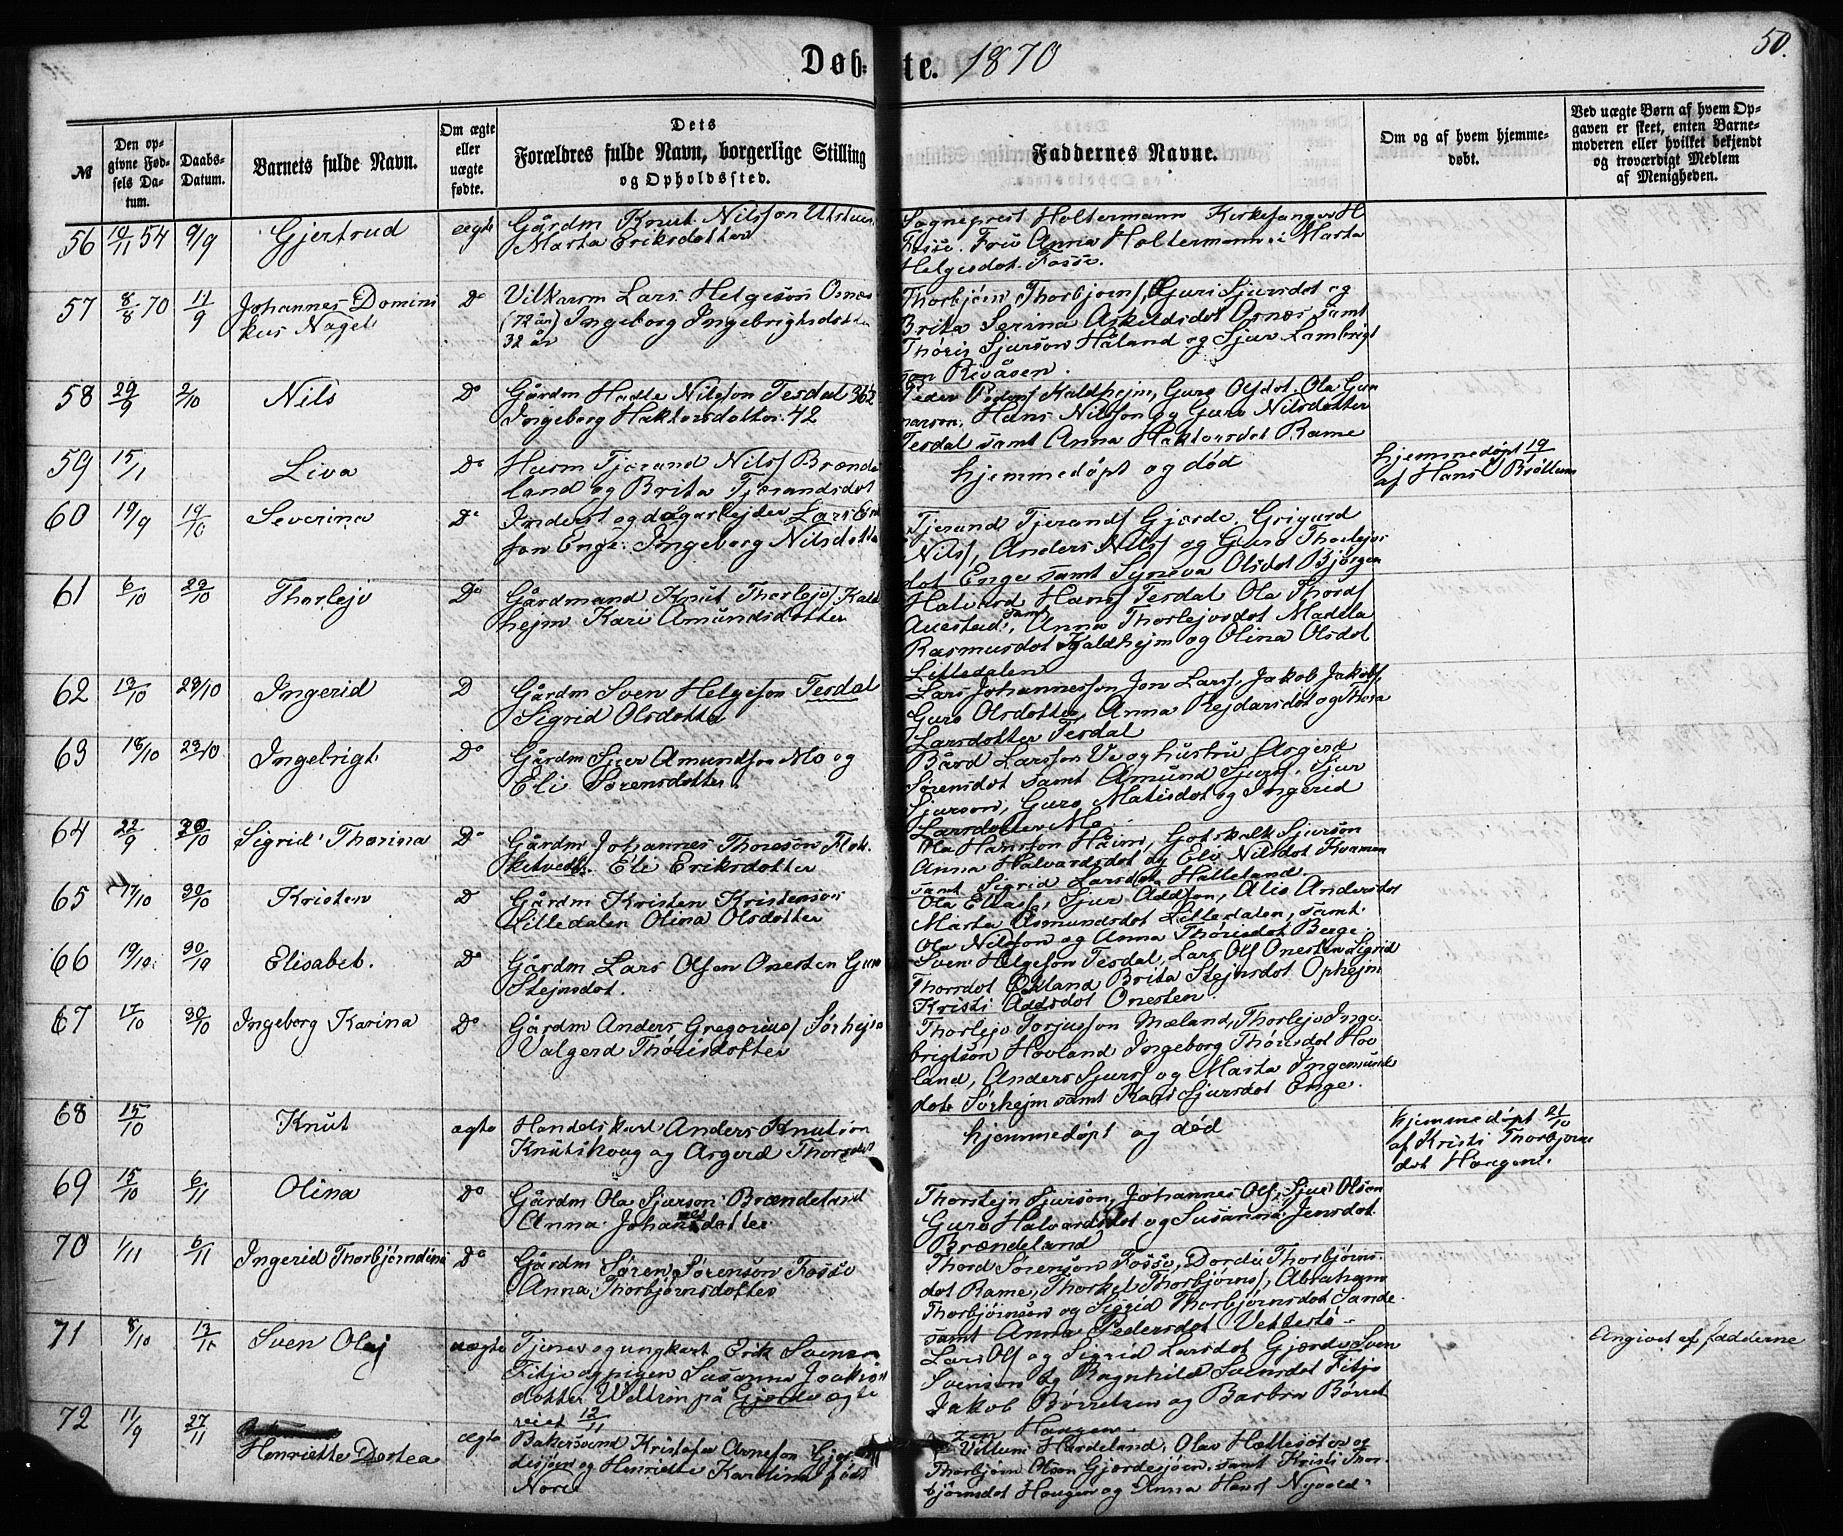 Døb- te. 1870
50.
№
Den opgivne Fødsels Datum.
Daabs-Datum.
Barnets fulde Navn.
Om ægte eller uægte fødte.
Dets Forældres fulde Navn, borgerlige Stilling og Opholdssted.
Faddernes Navne.
Om og af hvem hjemmedøbt.
Ved uægte Børn af hvem Opgaven er skeet, enten Barnemoderen eller hvilket bekjendt og troværdigt Medlem af Menigheden.
56 10/11 54 9/9 Gjertrud ægte Gårdm Knut Nilsson
Marta Eriksdotter
Sogneprest Holtermann Kirkesanger H
Fosse. Fru Anna Holtermann, Marta
Helgesdot. Fosse.
57 8/8 70 11/9 Johannes Domini
kus Nagel
Do Lars Helgeson Osnes
(72 år) Ingeborg Ingebrigtsdotter
32 år
Thorbjørn Thorbjørns, Guri Sjursdot og
Brita Serina Askildsdot Osnes samt
Thoris Sjurson Håland og Sjur Lambrigt
son Rivåsen.
58 29/9 2/10 Nils Do Gårdm Helle Nilsson Tesdal 36½
Ingeborg Haktorsdotter 42
Peder Peders Kaldhejm, Guro Olsdot. Ola Gun
narson, Hans Nilsson og Guro Nilsdotter
Tesdal samt Anna Haktorsdot Rame
59 15/1 Liva Do Husm Tjerand Nilss Brænde
land og Brita Tjerandsdot
hjemmedøpt og død
hjemmedøpt 19/1
af Hans Brøllum
60 19/9 19/10 Severina Do Inderst og dagarbejder Lars
son Enge: Ingeborg Nilsdotter
Tjerand Tjerands Gjerde. Grigard
Nils, Anders Nils og Guro Thorlejvs
dot Enge samt Syneva Olsdot Bjørgen
61 6/10 23/10 Thorlejv Do Gårdmand Knut Thorlejvs Kald
hejm Kari Amundsdotter
Halvard Hans Tesdal Ola Thords
Austad, samt Anna Thorlejvsdot Madela
Rasmusdot Kaldhejm og Olina Olsdot
Litledalen
62 13/10 23/10 Ingerid D Gårdm Sven Helgeson Tesdal
Sigrid Olsdotter
Lars Johannesson Jon Lars, Jakob Jakobs,
Guro Olsdotter, Anna Rejdarsdot og Thora
Larsdotter Tesdal
63 18/10 23/10 Ingebrigt Do Gårdm Sjur Amundson Mo og
Eli Sørensdotter
Bård Larsson Ve og hustru Asgerd
Sørensdot samt Amund Sjurs. Sjur
Sjurson, Guro Matisdot og Ingerid
Larsdotter Mo.
64 22/9 30/10 Sigrid Thorina Do Gårdm Johannes Thoreson Flok
ketvedt. Eli Eriksdotter
Ola Hansson Håim, Gotskalk Sjurson
Anna Halvardsdot og Eli Nilsdot Kvamen
samt Sigrid Larsdot Halleland.
65 17/10 30/10 Kristen D Gårdm Kristen Kristenson
Litledalen Olina Olsdotter
Ola Elias, Sjur Addson, Alis Andersdot
Marta Asmundsdot Litledalen, samt
Ola Nilsson og Anna Thorisdot Berge.
66 19/10 30/10 Elisabet. Do Gårdm Lars Olsen Onesten Guro
Stejnsdot.
Sven Helgeson Tesdal, Lars Ols Onesten Sigrid
Thorsdot Økland Brita Stejnsdot Ophejm
Kristi Addsdot Onesten.
67 17/10 30/10 Ingeborg Karina Do Gårdm Anders Gregorius Sørhejm
Valgerd Thorisdotter
Thorlejv Torjusson Mæland, Thorlejv Inge
brigtson Hovland Ingeborg Thorisdot Hov
land, Anders Sjurs og Marta Ingemunds
dot Sørhejm samt Kari Sjursdot Enge.
68 15/10 Knut ægte Handelskarl Anders Knutson
Knutshoug og Asgerd Thorsdot
hjemmedøpt og død
hjemmedøpt 21/10
af Kristi Thorbjørns
dot Hougen.
69 15/10 6/11 Olina Do Gårdm Ola Sjurson Brændeland
Anna Johannesdotter
Thorstejn Sjurson, Johannes Ols, Sjur Olsen
Guro Halvardsdot og Susanna Jensdot
Brændeland
70 1/11 6/11 Ingerid Thorbjørndina Do Gårdm Søren Sørenson Fosse
Anna Thorbjørnsdotter
Thord Sørenson Fosse, Dordi Thorbjørns
dot Rame, Thorkel Thorbjørns, Abraham
Thorbjørnsen og Sigrid Thorbjørnsdot Sande
samt Anna Pedersdot Vettestø
71 8/10 13/11 Sven Olaj uægte Tjener og ungkarl Erik Svenson
Fitje og pigen Susanna
dotter på Gjerde ægte
viet 12/11
Lars Ols og Sigrid Larsdot Gjerde Sven
Svenson og Ragnhild Svensdot Fitje
Jakob Børretsen og Barbra Børret
zen Hougen
Angivet af fadderne
72 11/9 27/11 Henriette Dortea ægte Bakersvend Kristofer Arneson Gjer
desjøen og Henriette Karolina født
Nore
Villum Hardeland, Olav Hallesøter og
Thorbjørn Olson Gjerdesjøen, samt Kristi Thor
bjørnsdot Hougen og Anna Hans Nyvold